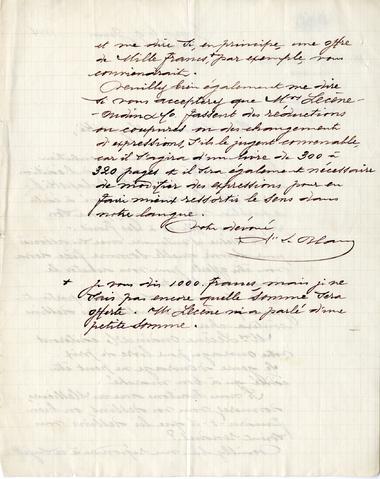 et me dire si, en principe, une offre
de Mille francs + par exemple, vous
conviendrait.
Veuillez bien également me dire
si vous acceptez que Mrs Lecène-
Oudin & Co fassent des réductions
ou coupures ou des changements
d'expressions, s'ils le jugent convenable,
car il s'agira d'un livre de 300 à
320 pages et il sera également nécessaire
de modifier des expressions pour en
faire mieux ressortir le sens dans
notre langue.
Votre dévoué
+ je vous dis 1000 francs mais je ne
sais pas encore quelle somme sera
offerte. Mr Lecène m'a parlé d'une
petite somme.